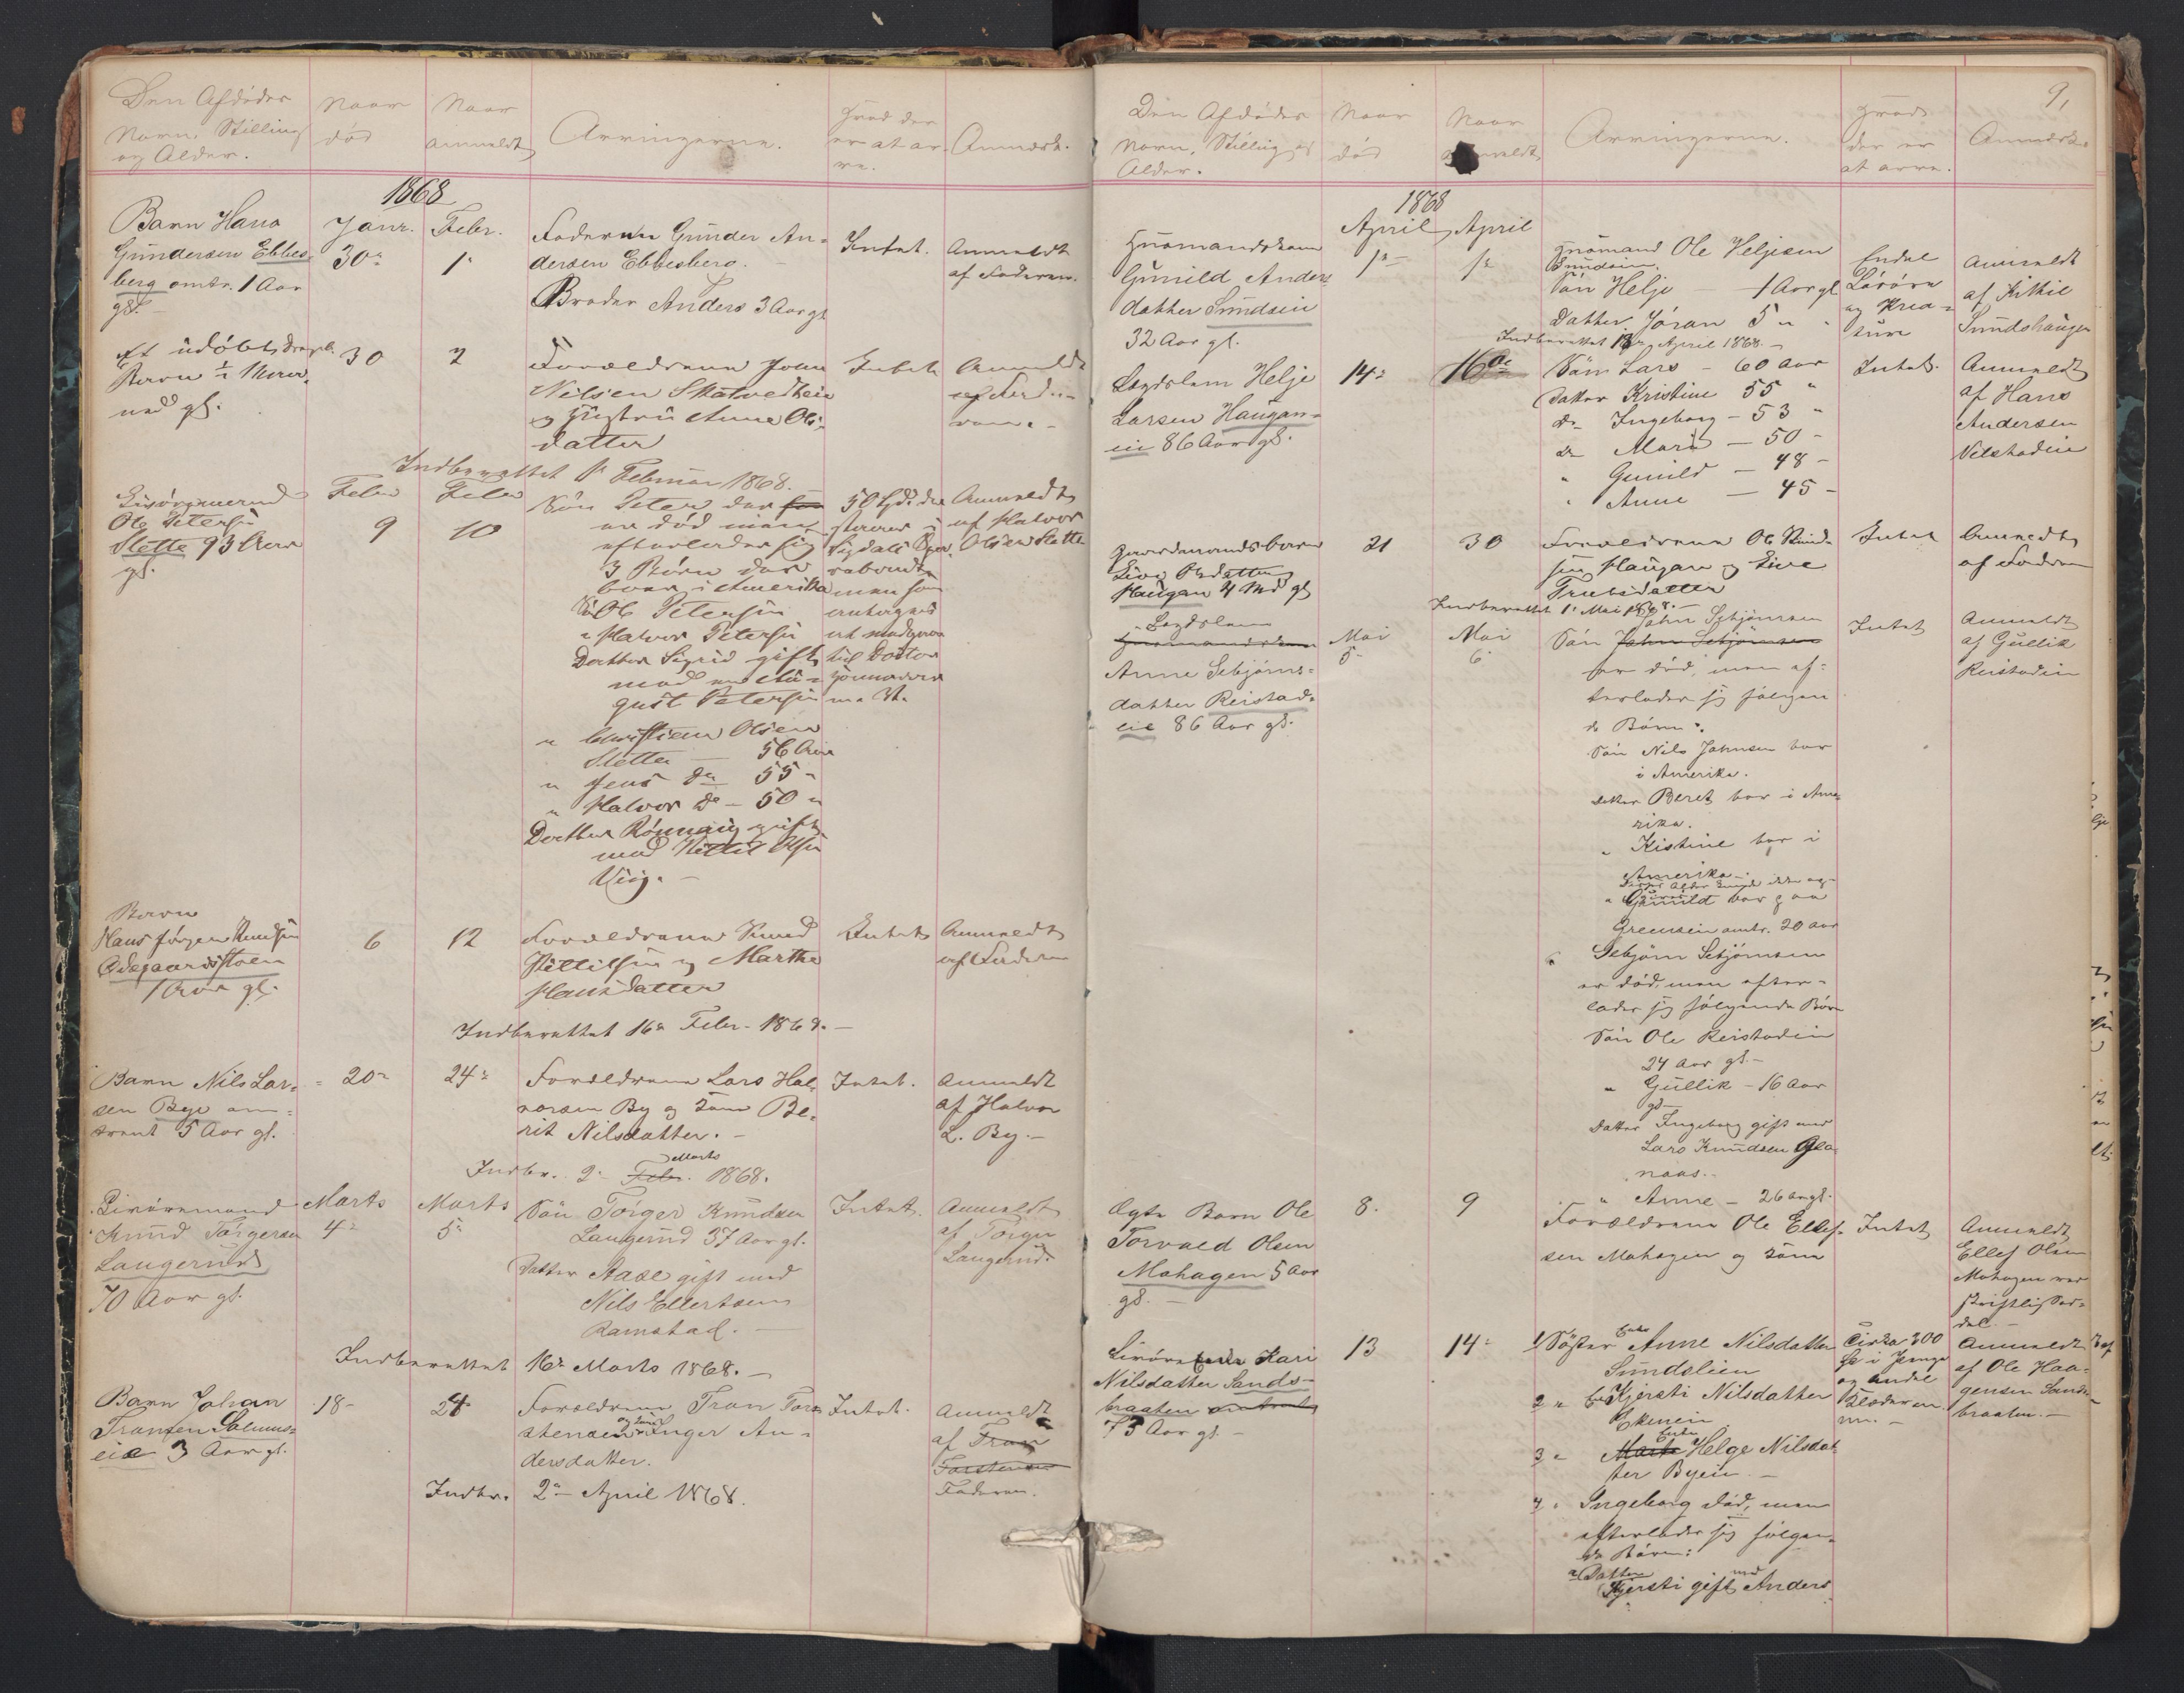 Den Afdødes
Navn, Stilling
og Alder.
Naar
død
Naar
anmeldt
Arvingerne.
Hvad der
er at ar-
ve.
Anmærk.
1868
Barn Hans
Gundersen Ebbes-
berg omtr. 1 Aar
gl.
Janr.
30
Febr.
1
Faderen Gunder An-
dersen Ebbesberg.
Broder Anders 3 Aar gl
Intet.
Anmeldt
af Faderen.
Et udøbt Drenge-
Barn
ned gl.
30
2
Forældrene John
Nilsen Skatvedteie
og Hustru Anne Ols-
datter
Intet
Anmeldt
af Fade-
ren.
Indberettet 1 Februar 1868.
Ole Petersen
Slette 93 Aar
gl.
Febr
9
Febr
10
Søn Peter der
er død men
efterlader sig
3 Børn der
boer i Amerika
Søn Ole Petersen
" Halvor Petersen
Datter Sigrid gift
med en Au-
gust Petersen
" Christian Olsen
Slette — 56 Aar
" Jens do 55 "
" Halvor do - 50 "
Datter Rønnaug gift
med Kittil Olsen
Viig.
50 Spd. der
i
Sigdals Spa-
men som
til Doctor
m. V.
Anmeldt
af Halvor
Olsen Slette
Barn
Hans Jørgen Knudsen
Ødegaardsstoen
1 Aar gl.
6
12
Forældrene Knud
Kittilsen og Marthe
Hansdatter
Intet
Anmeldt
af Faderen
Indberettet 16 Febr. 1868.
Barn Nils Lar-
sen Bye om-
trent 5 Aar gl.
20
24
Forældrene Lars Hal-
vorsen By og Kone Be-
rit Nilsdatter.
Intet.
Anmeldt
af Halvor
L. By.
Marts
Indbr. 2 Febr. 1868.
Livøremand
Knud Torgersen
Langerud
70 Aar gl.
Marts
4
Marts
5
Søn Torger Knudsen
Langerud 37 Aar gl.
Datter Aase gift med
Nils Ellertsen
Ramstad.
Intet.
Anmeldt
af Torger
Langerud.
Indberettet 16 Marts 1868.
Barn Johan
Transen
eie 3 Aar gl.
18
24
Forældrene Tran Tor-
stensen og Kone Inger An-
dersdatter.
Intet.
Anmeldt
af Tran
Torstensen
Faderen.
Indbr. 2 April 1868.
9,
Den Afdødes
Navn, Stilling og
Alder.
Naar
død
Naar
anmeldt
Arvingerne.
Hvad
der er
at arve.
Anmærk.
1868
Husmandskone
Gunild Anders-
datter Sundseie
32 Aar gl.
April
1
April
1
Husmand Ole Heljesen
Sundseie.
Søn Helje — 1 Aar gl
Datter Jøran 5 " "
Endel
Løsøre
og Krea-
ture
Anmeldt
af Kittil
Sundshaugen
Indberettet 13 April 1868.
Lægdslem Helje
Larsen Haugan-
eie 86 Aar gl.
14
16
Søn Lars — 60 Aar
Datter Kristine 55 "
do Ingeborg — 53 "
do Mari — 50 -
" Gunild — 48 -
" Anne — 45 -
Intet.
Anmeldt
af Hans
Andersen
Nilstadeie
Gaardmandsbarn
Live Olsdatter
Haugan 4 Md gl
21
30
Forældrene Ole Knud-
sen Haugan og Live
Truelsdatter
Intet
Anmeldt
af Faderen
Indberettet 1 Mai 1868.
Lægdslem
Husmandskone
Anne Sebjørns-
datter Reistad-
eie 86 Aar gl.
Mai
5
Mai
6
John Sebjørnsen
Søn John Sebjørnsen
er død, men ef-
terlader sig følgen
de Børn:
Søn Nils Johnsen bor
i Amerika.
Datter Beret bor i Ame-
rika.
" Kistine bor i
Amerika.
" Gunild bor paa
Grensein omtr. 20 aar
" Sebjørn Sebjørnsen
er død, men efter-
lader sig følgende Børn
Søn Ole Reistadeie
24 Aar gl.
" Gullik — 16 Aar
gl
Datter Ingeborg gift med
Lars Knudsen Gla-
naas.
" Anne — 26 aar gl.
Intet
Anmeldt
af Gullik
Reistadeie
Ægte Barn Ole
Torvald Olsen
Mohagen 5 Aar
gl.
8.
9
Forældrene Ole Ellef-
sen Mohagen og Kone
Intet
Anmeldt
Ellef Olsen
Mohagen ved
skriftlig Sed-
del.
Livøreenke Kari
Nilsdatter Sands-
braaten omtrent
73 Aar gl.
13
14
1/ Søster Enke Anne Nilsdatter
Sundslien
2 " Kjersti Nilsdatter
Ekeneie
3 " Enke Helge Nilsdat-
ter Byeie.
4 " Ingeborg død, men
efterlader sig følgen-
de Børn:
a Datter
Kjersti gift med Anders
Cirka 300
Sp i Penge
og endel
Klæder m.
m.
Anmeldt
af Ole Haa-
gensen Sands-
braaten.